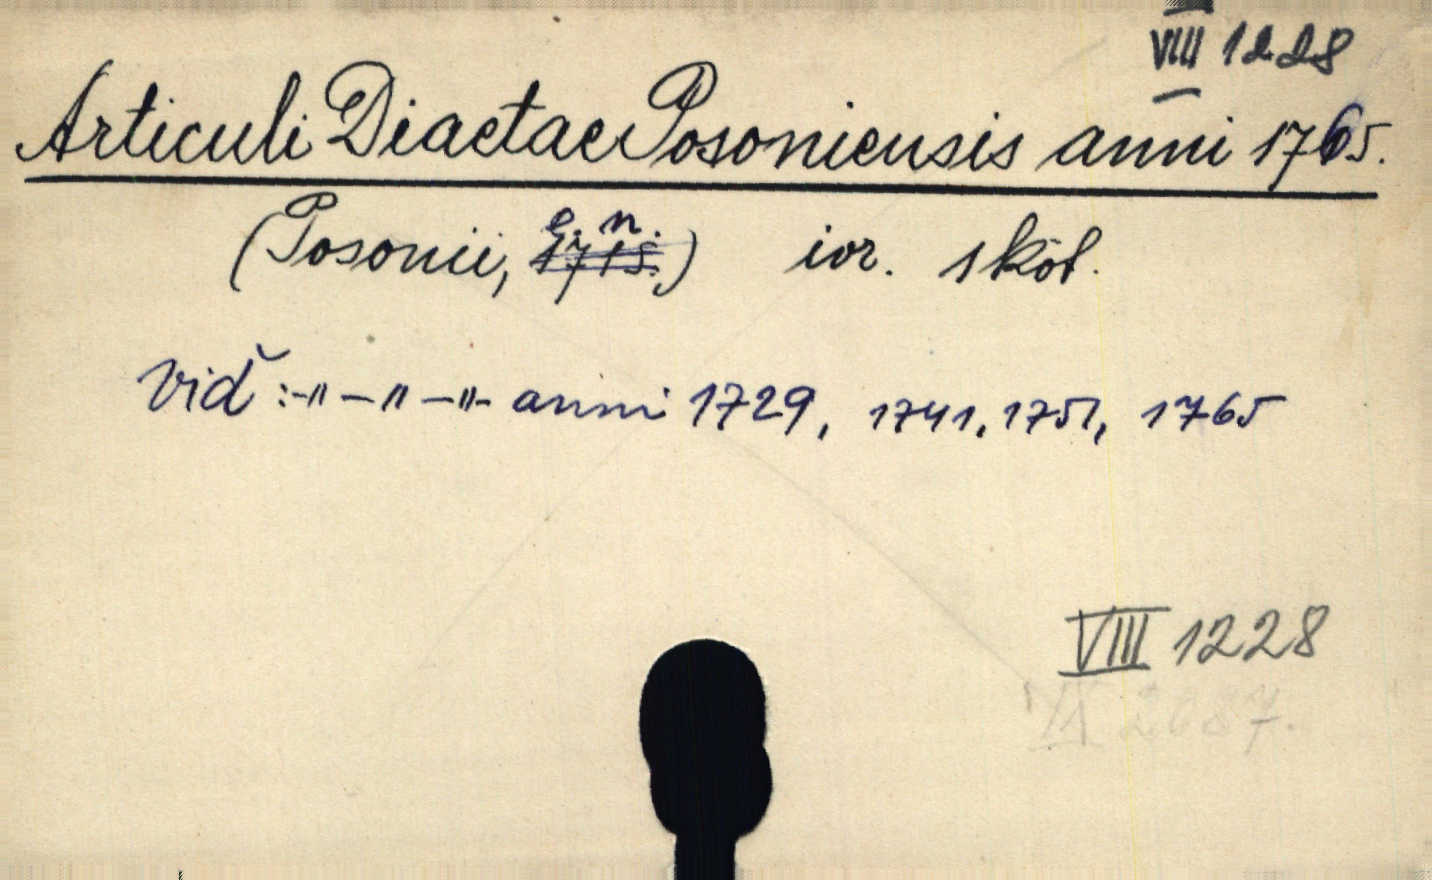 VIII 1228
Articuli Diaetae Posoniensis anni 1765.
(Posonii, e. n. 1715.) ior. sköt.
viď :-"-"-"- anni 1729, 1741, 1751, 1765
VIII 1228
2687.